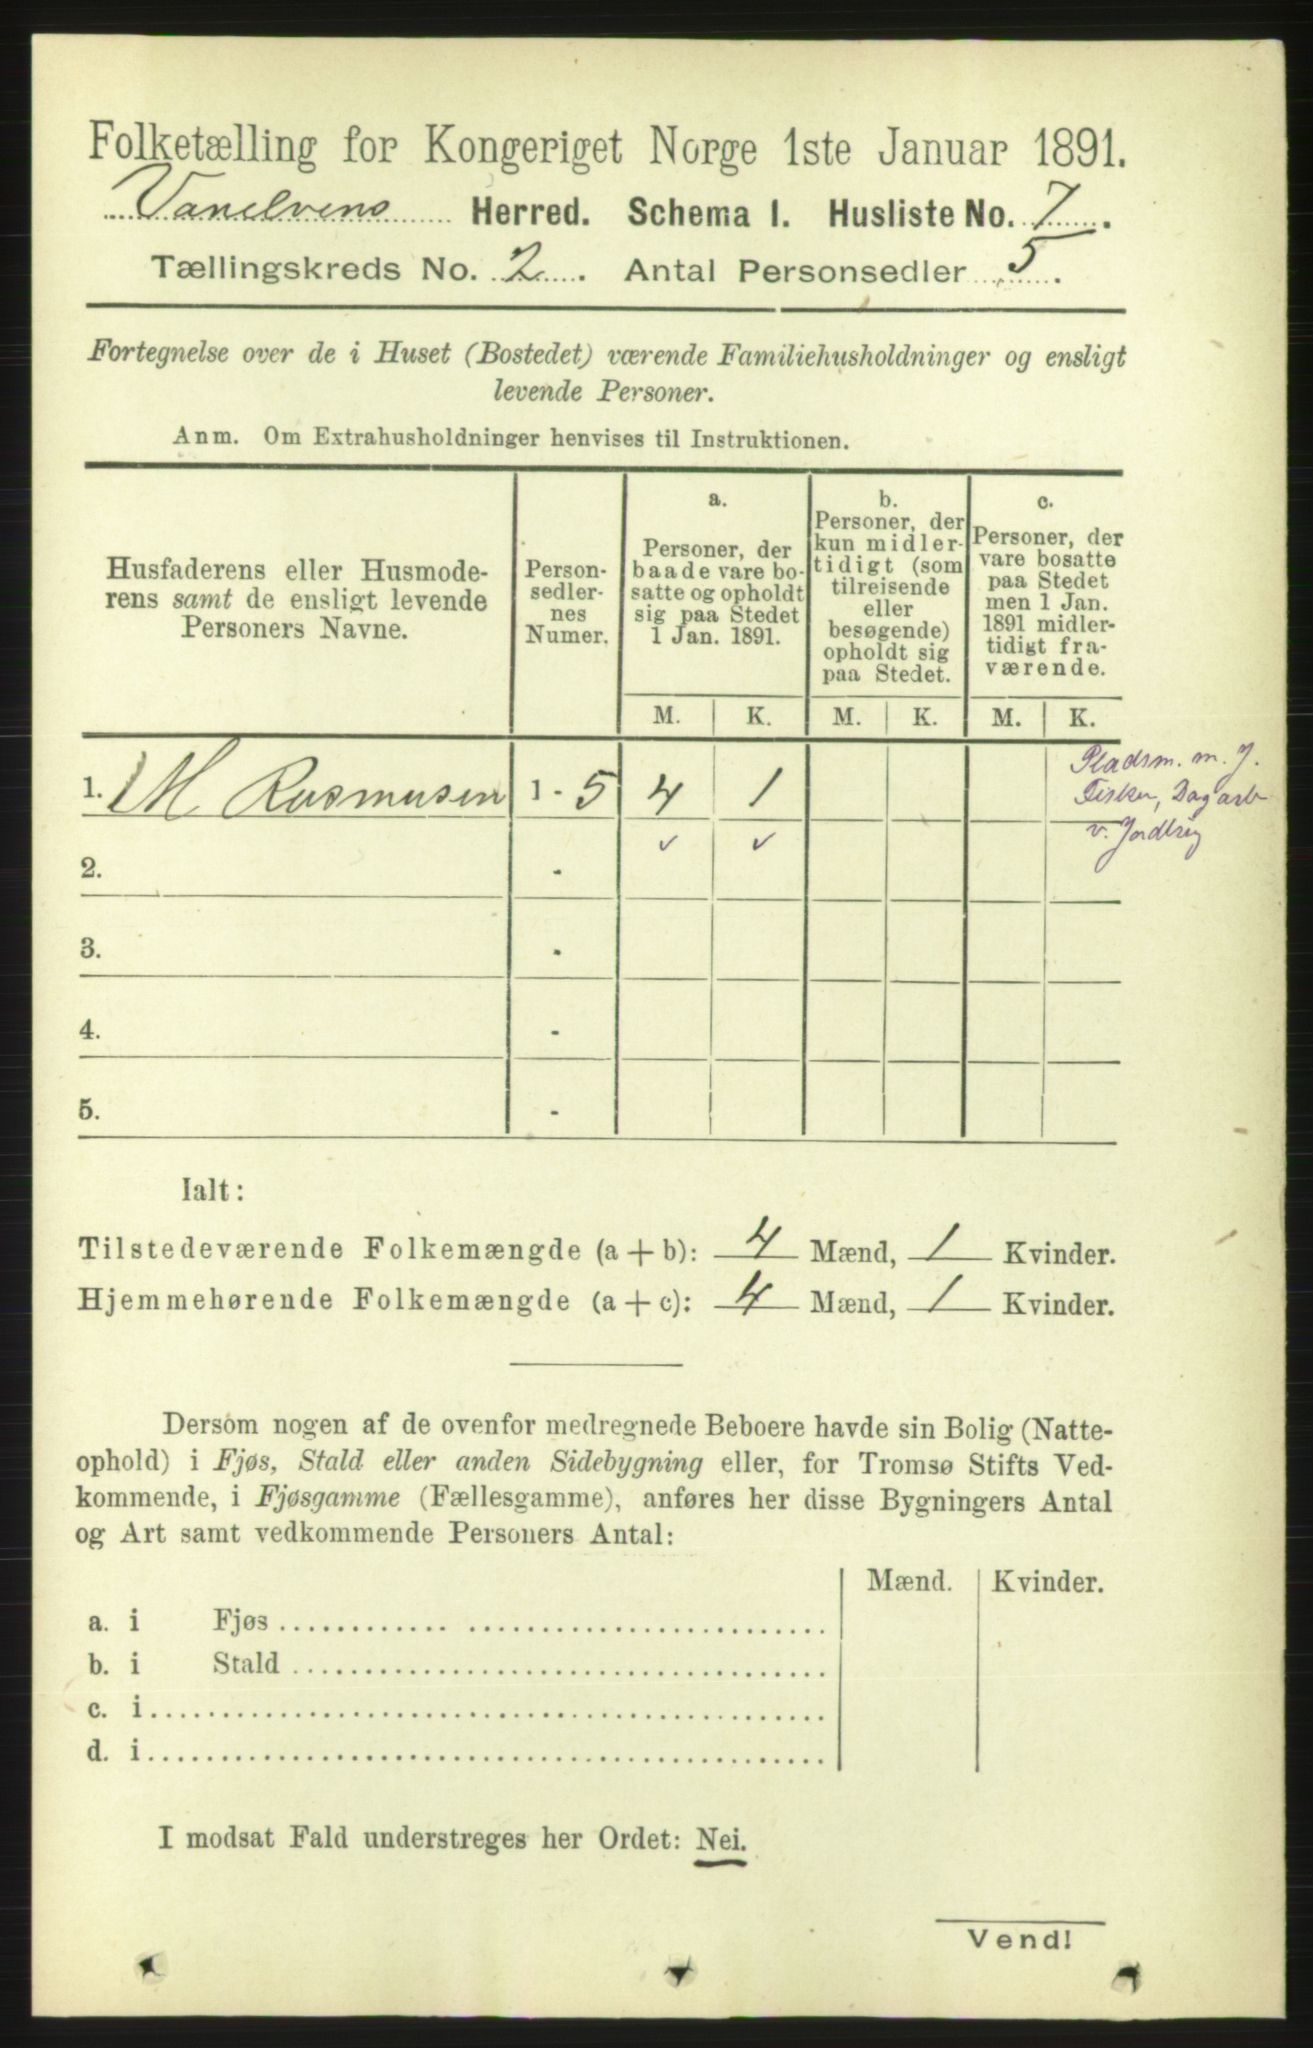 Folketælling for Kongeriget Norge 1ste Januar 1891.
Vanelvens Herred. Schema I. Husliste No. 7.
Tællingskreds No. 2. Antal Personsedler 5.
Fortegnelse over de i Huset (Bostedet) værende Familiehusholdninger og ensligt
levende Personer.
Anm. Om Extrahusholdninger henvises til Instruktionen.
Husfaderens eller Husmode-
rens samt de ensligt levende
Personers Navne.
Person-
sedler-
nes
Numer.
a.
Personer, der
baade vare bo-
satte og opholdt
sig paa Stedet
1 Jan. 1891.
b.
Personer, der
kun midler-
tidigt (som
tilreisende
eller
besøgende)
opholdt sig
paa Stedet.
c.
Personer, der
vare bosatte
paa Stedet
men 1 Jan.
1891 midler-
tidigt fra-
værende.
M. K. M. K. M. K.
1. M Rasmusen 1 - 5 4 1
Pladsm. m. J.
Fisker, Dagarb
v. Jordbrug
✓ ✓
2. -
3. -
4. -
5. -
Ialt:
Tilstedeværende Folkemængde (a + b): 4 Mænd, 1 Kvinder.
Hjemmehørende Folkemængde (a + c): 4 Mænd, 1 Kvinder.
Dersom nogen af de ovenfor medregnede Beboere havde sin Bolig (Natte-
ophold) i Fjøs, Stald eller anden Sidebygning eller, for Tromsø Stifts Ved-
kommende, i Fjøsgamme (Fællesgamme), anføres her disse Bygningers Antal
og Art samt vedkommende Personers Antal:
Mænd. Kvinder.
a. i Fjøs
b. i Stald
c. i
d. i
I modsat Fald understreges her Ordet: Nei.
Vend!